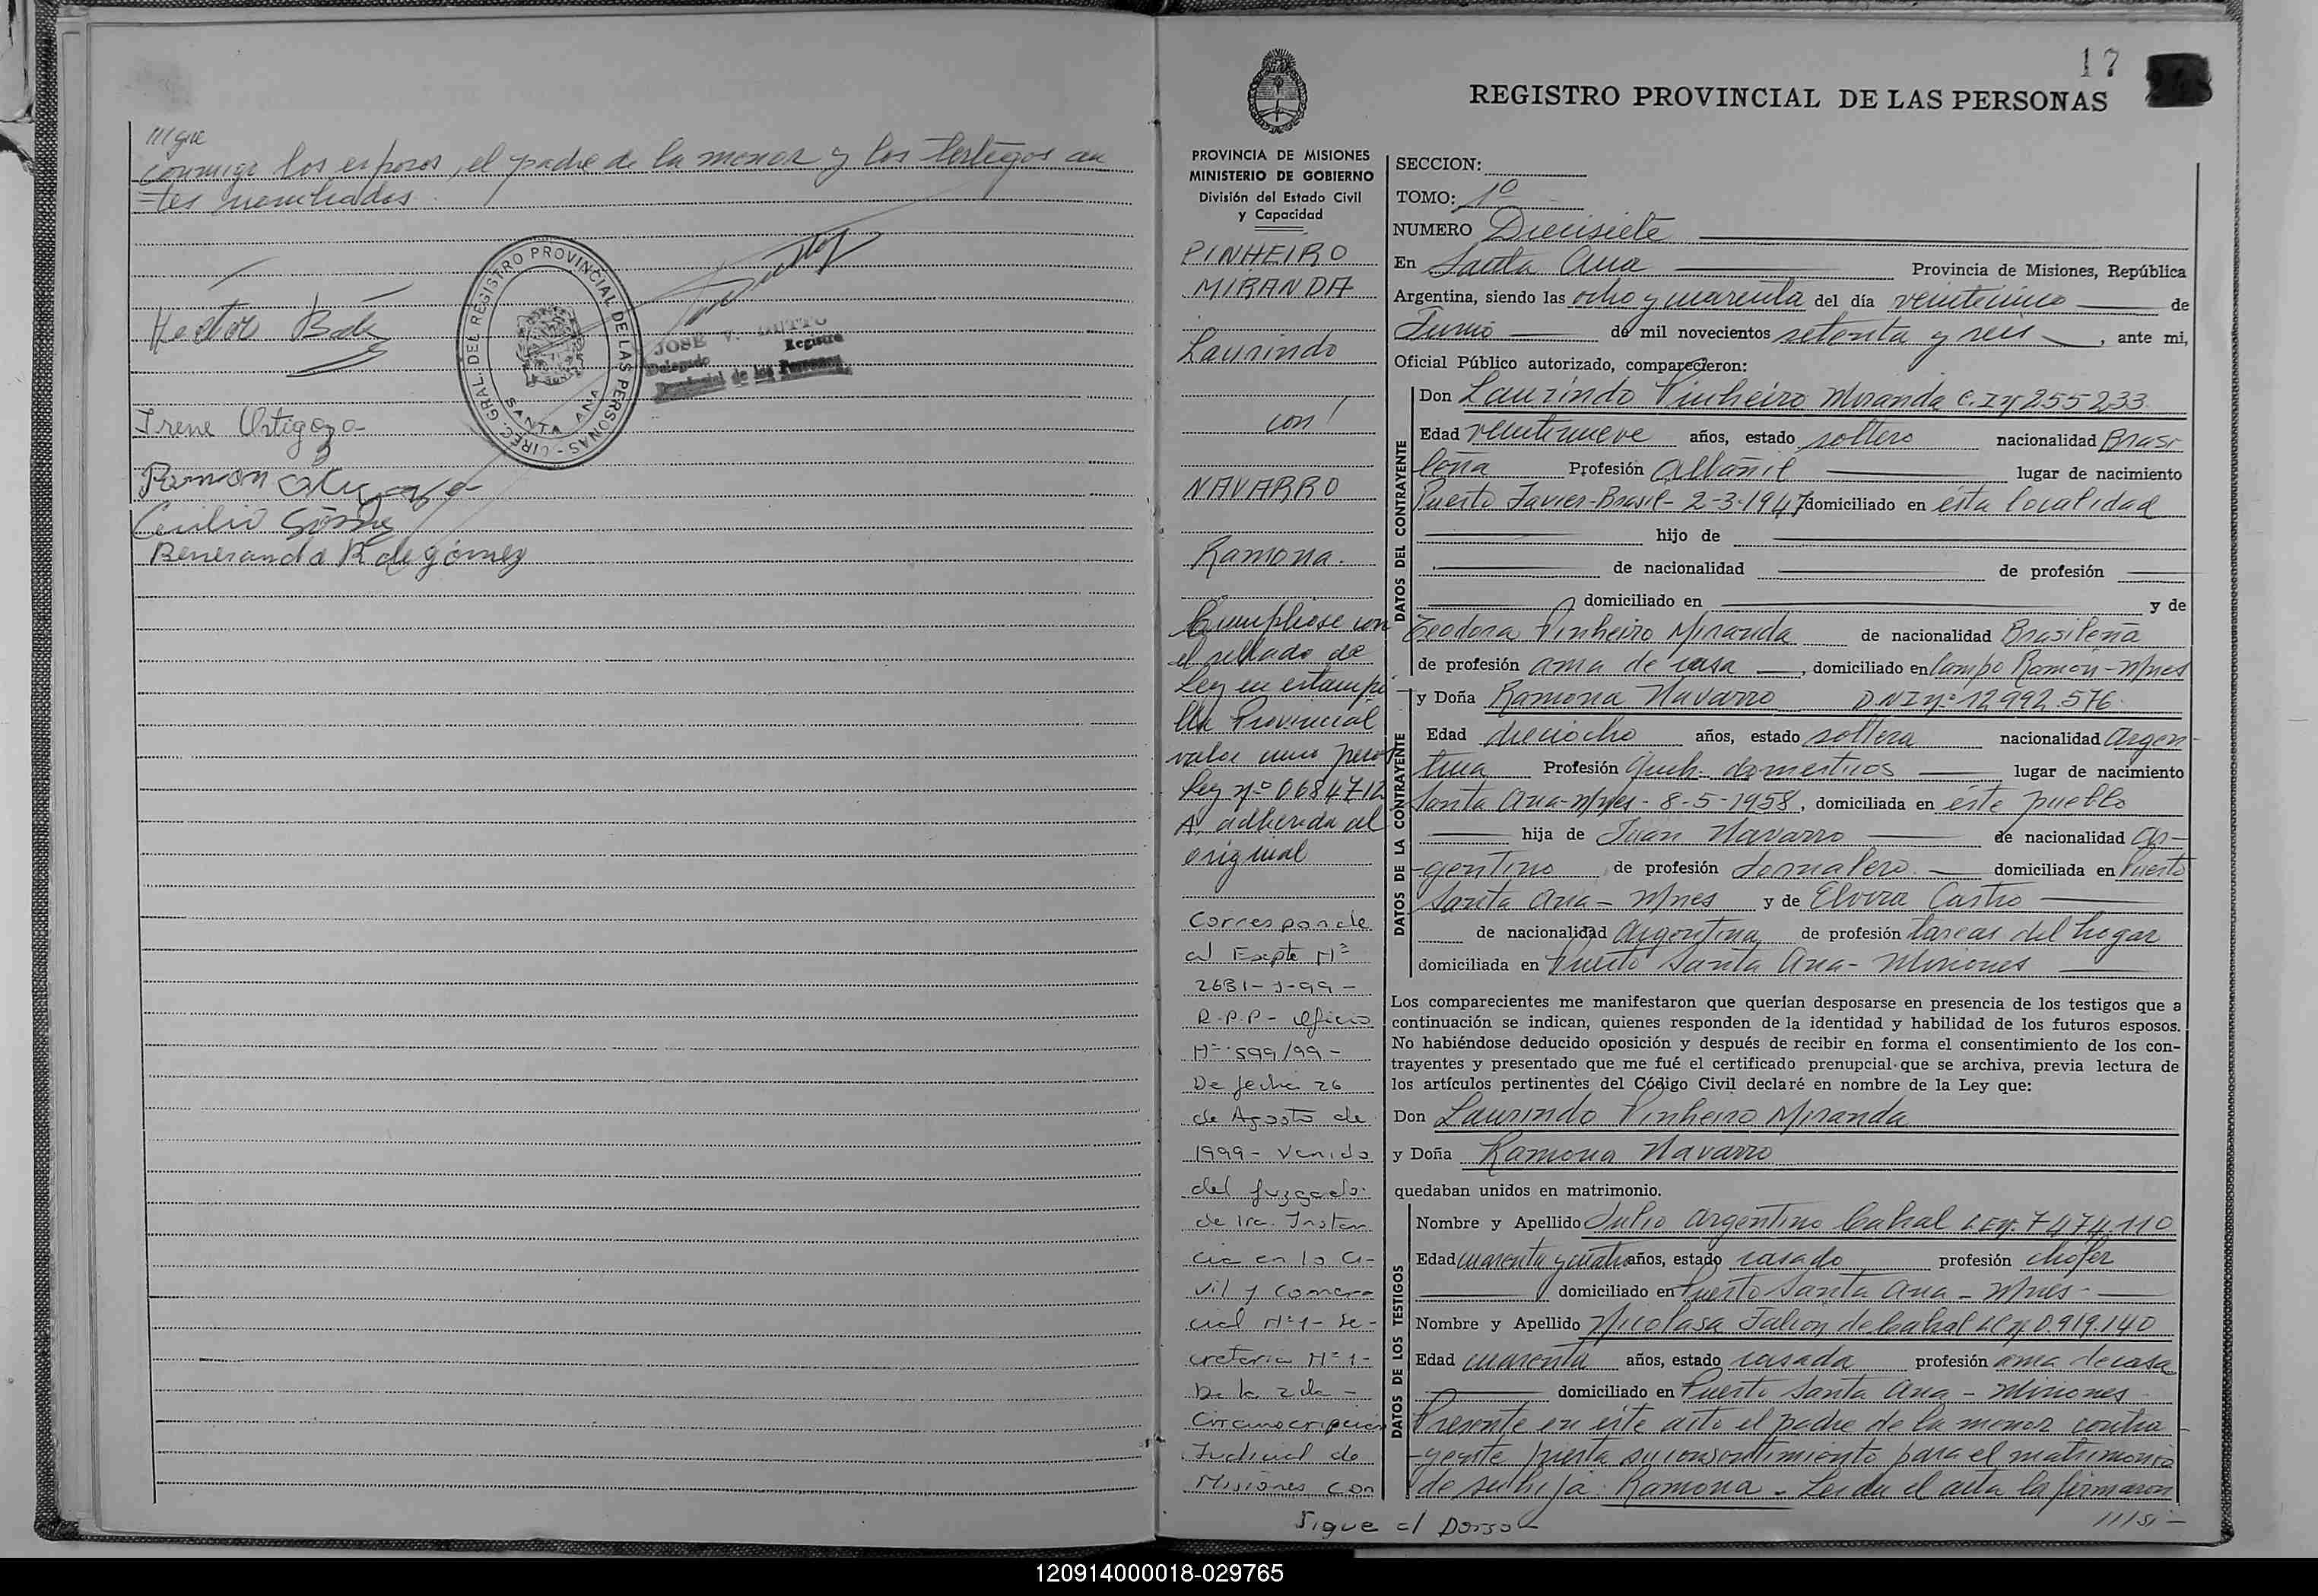 conmigo los esposos, el padre de la menor y los testigos an
=tes nombrados.
DIREC. GRAL. DEL REGISTRO PROVINCIAL DE LAS PERSONAS -
SANTA ANA
JOSE V.
Delegado Registro
Provincial de las Personas
Hector
Irene Ortigoza
Ramon
Cecilio Gómez
Beneranda R de gómez
17
REGISTRO PROVINCIAL DE LAS PERSONAS
PROVINCIA DE MISIONES
MINISTERIO DE GOBIERNO
División del Estado Civil
y Capacidad
PINHEIRO
MIRANDA
Laurindo
con
NAVARRO
Ramona.
Cumpliose con
el sellado de
Ley en estampi
lla Provincial
valor uno peso
Ley nº 0684712
A. adherida al
original
Corresponde
al Expte Nº
2631-J-99-
R.P.P- Oficio
Nº 599/99-
De fecha 26
de Agosto de
1999- Venido
del Juzgado
de 1ra. Instan
cia en lo Ci-
vil y Comer
cial Nº1- Se-
cretaria Nº 1-
De la 2da -
Circunscripcion
Judicial de
Misiones con
Sigue al Dorso
SECCION:
TOMO: 1º
NUMERO Diecisiete
En Santa Ana Provincia de Misiones, República
Argentina, siendo las ocho y cuarenta del día veinticinco de
Junio de mil novecientos setenta y seis, ante mi,
Oficial Público autorizado, comparecieron:
DATOS DEL CONTRAYENTE
Don Laurindo Pinheiro Miranda C.I nº 255233
Edad veintinueve años, estado soltero nacionalidad Brasi
leña Profesión Albañil lugar de nacimiento
Puerto Javier-Brasil- 2-3-1947 domiciliado en esta localidad
hijo de
de nacionalidad de profesión
domiciliado en y de
Teodora Pinheiro Miranda de nacionalidad Brasileña
de profesión ama de casa, domiciliado en Campo Ramón-Mnes
DATOS DE LA CONTRAYENTE
y Doña Ramona Navarro DNI nº 12.992.576
Edad dieciocho años, estado soltera nacionalidad Argen-
tina Profesión Queh. domesticos lugar de nacimiento
Santa Ana-Mnes- 8-5-1958, domiciliada en este pueblo
hija de Juan Navarro de nacionalidad Ar-
gentino de profesión Jornalero domiciliada en Puerto
Santa Ana- Mnes y de Elvira Castro
de nacionalidad Argentina de profesión tareas del hogar
domiciliada en Puerto Santa Ana- Misiones
Los comparecientes me manifestaron que querían desposarse en presencia de los testigos que a
continuación se indican, quienes responden de la identidad y habilidad de los futuros esposos.
No habiéndose deducido oposición y después de recibir en forma el consentimiento de los con-
trayentes y presentado que me fué el certificado prenupcial que se archiva, previa lectura de
los artículos pertinentes del Código Civil declaré en nombre de la Ley que:
Don Laurindo Pinheiro Miranda
y Doña Ramona Navarro
quedaban unidos en matrimonio.
DATOS DE LOS TESTIGOS
Nombre y Apellido Julio Argentino Cabral L.E nº. 7.474.110
Edad cuarenta y cuatro años, estado casado profesión chofer
domiciliado en Puerto Santa Ana - Mnes-
Nombre y Apellido Nicolasa de Cabral L.C nº 0.919.140
Edad cuarenta años, estado casada profesión ama de casa
domiciliado en Puerto Santa Ana - Misiones
Presente en este acto el padre de la menor contra-
yente presta su consentimiento para el matrimonio
de su hija: Ramona - Leida el acta la firmaron
120914000018-029765